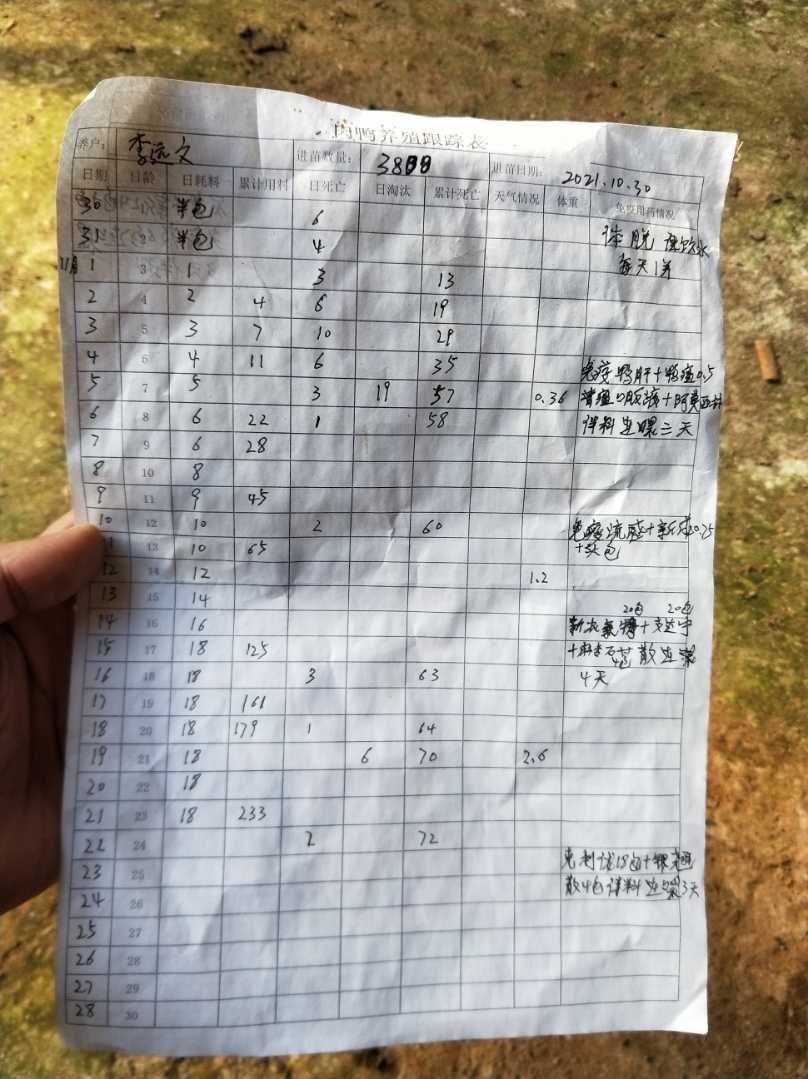 肉鸭养殖跟踪表
养户： 李远文 进苗数量： 3800 进苗日期： 2021.10.30
日期 日龄 日耗料 累计用料 日死亡 日淘汰 累计死亡 天气情况 体重 免疫用药情况
30 半包 6
31 半包 4
11月 1 3 1 3 13 每天1弟
2 4 2 4 6 19
3 5 3 7 10 29
4 6 4 11 6 35 免疫鸭肝+鸭瘟0.5
5 7 5 3 19 57 0.36
6 8 6 22 1 58 拌料连喂三天
7 9 6 28
8 10 8
9 11 9 45
10 12 10 2 60 免疫流感+新流0.75
11 13 10 65 +头包
12 14 12 1.2
13 15 14 20包 20包
14 16 16
15 17 18 125 散连喂
16 18 18 3 63 4天
17 19 18 161
18 20 18 179 1 64
19 21 18 6 70 2.6
20 22 18
21 23 18 233
22 24 2 72
23 25
24 26 散4包拌料连喂3天
25 27
26 28
27 29
28 30